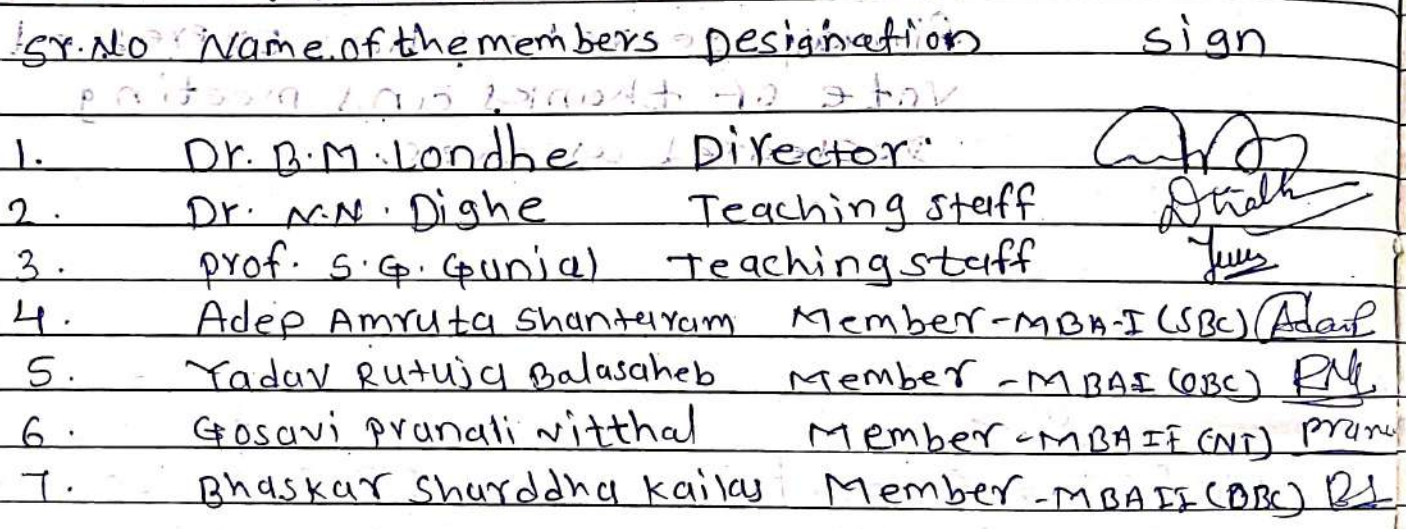 Sr.No Name of the members Designation sign
1. Dr. B.M. Londhe Director
2. Dr. N.N. Dighe Teaching staff
3. prof. S.G. Gunjal Teaching staff
4. Adep Amruta Shantaram Member-MBA-I (SBC) Adep
5. Yadav Rutuja Balasaheb Member-MBAI (OBC)
6. Gosavi pranali vitthal Member-MBAII (NT)
7. Bhaskar Sharddha kailas Member-MBAII (OBC)